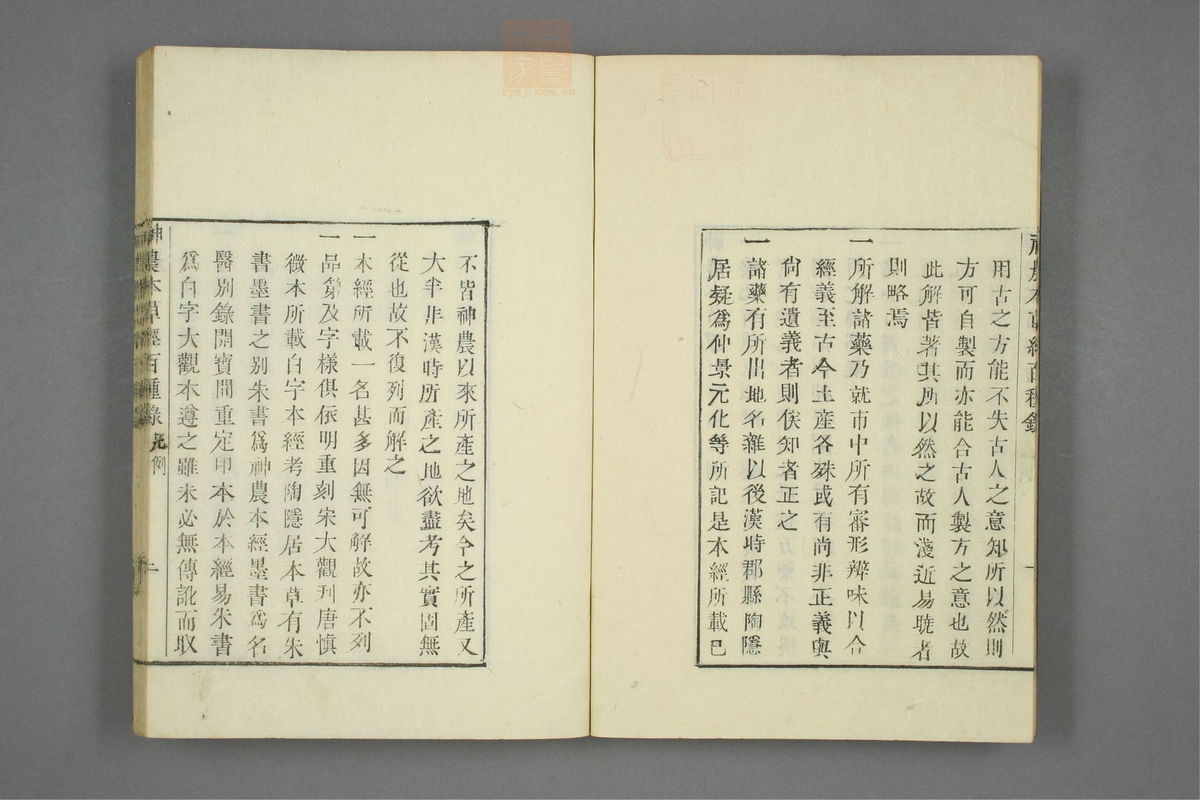 神農本草經百種錄
用古之方能不失古人之意知所以然則
方可自製而亦能合古人製方之意也故
此解皆著其所以然之故而淺近易曉者
則略焉
一所解諸藥乃就市中所有審形辯味以合
經義至古今土產各殊或有尚非正義與
尚有遺義者則俟知者正之
一諸藥有所出地名雜以後漢時郡縣陶隱
居疑為仲景元化等所記是本經所載已
不皆神農以來所產之地矣今之所產又
大半非漢時所產之地欲盡考其實固無
從也故不復列而解之
一本經所載一名甚多因無可解故亦不列
一品第及字樣俱依明重刻宋大觀刊唐慎
微本所載白字本經考陶隱居本草有朱
書墨書之別朱書為神農本經墨書為名
醫別錄開寶間重定印本於本經易朱書
為白字大觀本遵之雖未必無傳訛而取
神農本草經百種錄 凡例 二
zysj.com.cn